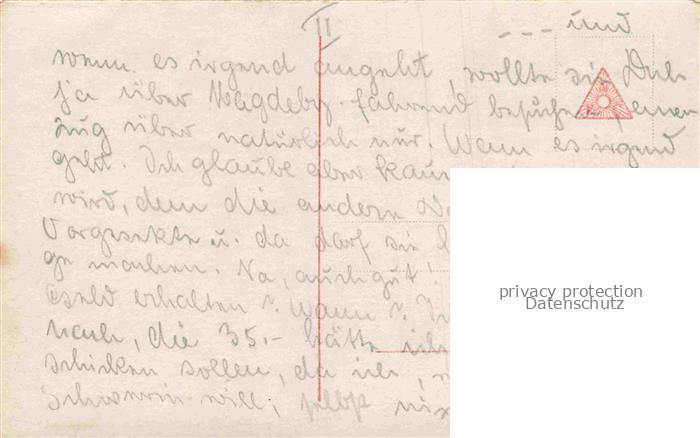 II
--- und
wenn es irgend angeht, wollte sie Dich
ja über Magdebg. fahrend besuchen,
zug über natürlich nur. Wann es irgend
geht. Ich glaube aber kaum
wird, denn die andere
Vorgesetzte u. da darf sie
ge machen. Na, auch gut!
Geld erhalten? Wann?
nach, die 35.- hätte ich
schicken sollen, da ich,
Schwerin will, selbst
privacy protection
Datenschutz